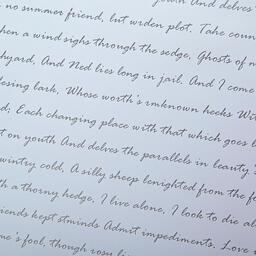 youth And delves
no summer friend, but wrden plot. Take coun
hen a wind sighs through the sedge, Ghosts of m
hyard, And Ned lies long in jail. And I come
esing lark, Whose worth's rmknown heeks Wit
d; Each changing place with that which goes b
t on youth And delves the parallels in beauty's
wintry cold, A silly sheep lenighted from the f
h a thorny hedge, I live alone, I look to die al
iends kept stminds Admit impediments. Love
me's fool, though rosy li